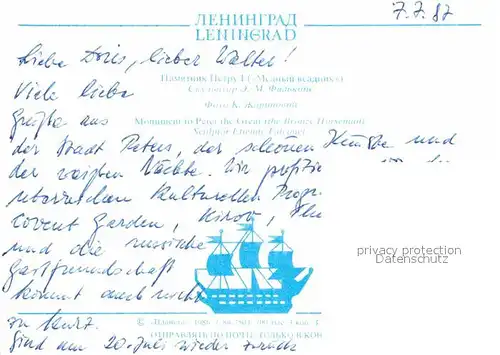 ЛЕНИНГРАД
LENINGRAD
7.7.87
Liebe Doris, lieber Walter!
Памятник Петру I («Медный всадник»)
Скульптор Э. М. Фальконе
Viele liebe
Фото К.
Grüße aus
Monument to Peter the Great (the Bronze Horseman)
Sculptor Etienne Falconet
der Stadt Peters, der schönen Künste und
der weißen Nächte. Wir
kulturellen Progr
Covent Garden, Kirov,
und die russische
privacy protection
Datenschutz
Gastfreundschaft
kommt auch nicht
zu kurz.
ОТПРАВЛЯТЬ ПО ПОЧТЕ ТОЛЬКО В КОН
Sind am 20. Juli wieder zurück